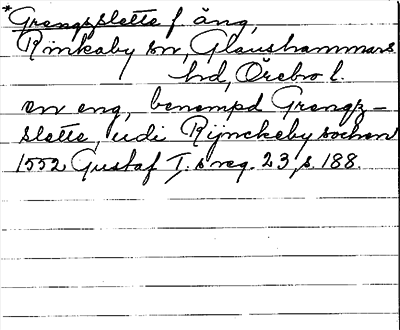 *Grangsslette f äng,
Rinkaby sn, Glanshammars
hd, Örebro l.
en eng, benempd Grangz-
slette, udi Rijnckeby sochen
1552 Gustaf I:s reg. 23, s. 188.